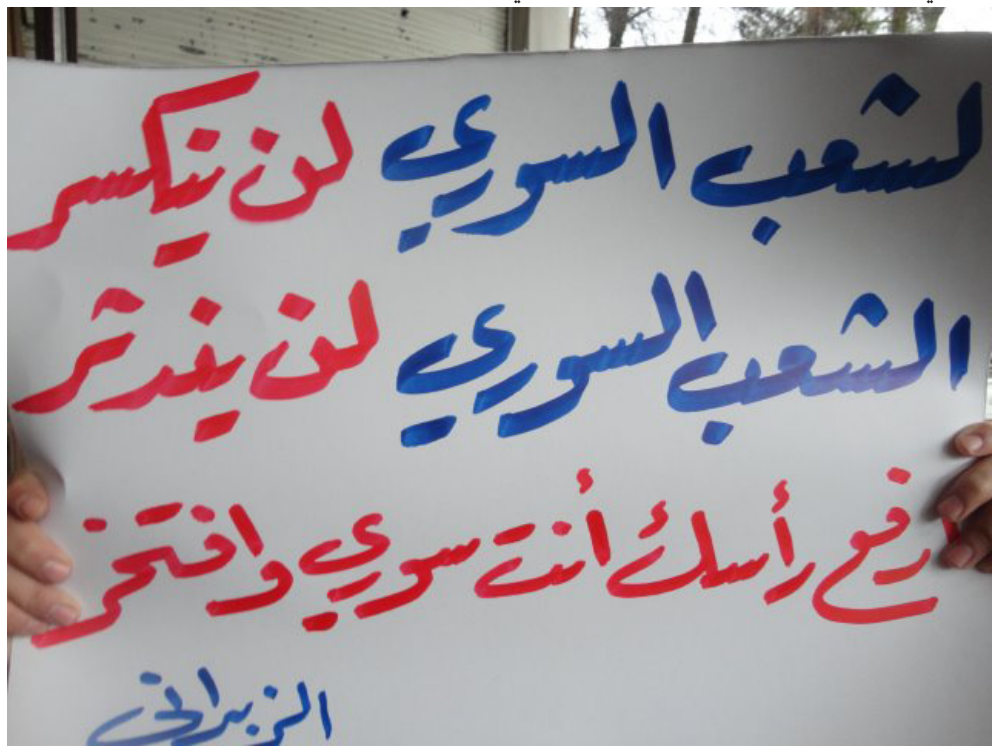 لشعب السوري لن ينكسر
الشعب السوري لن يندثر
رفع رأسك أنت سوري وافتخر
الزبداني